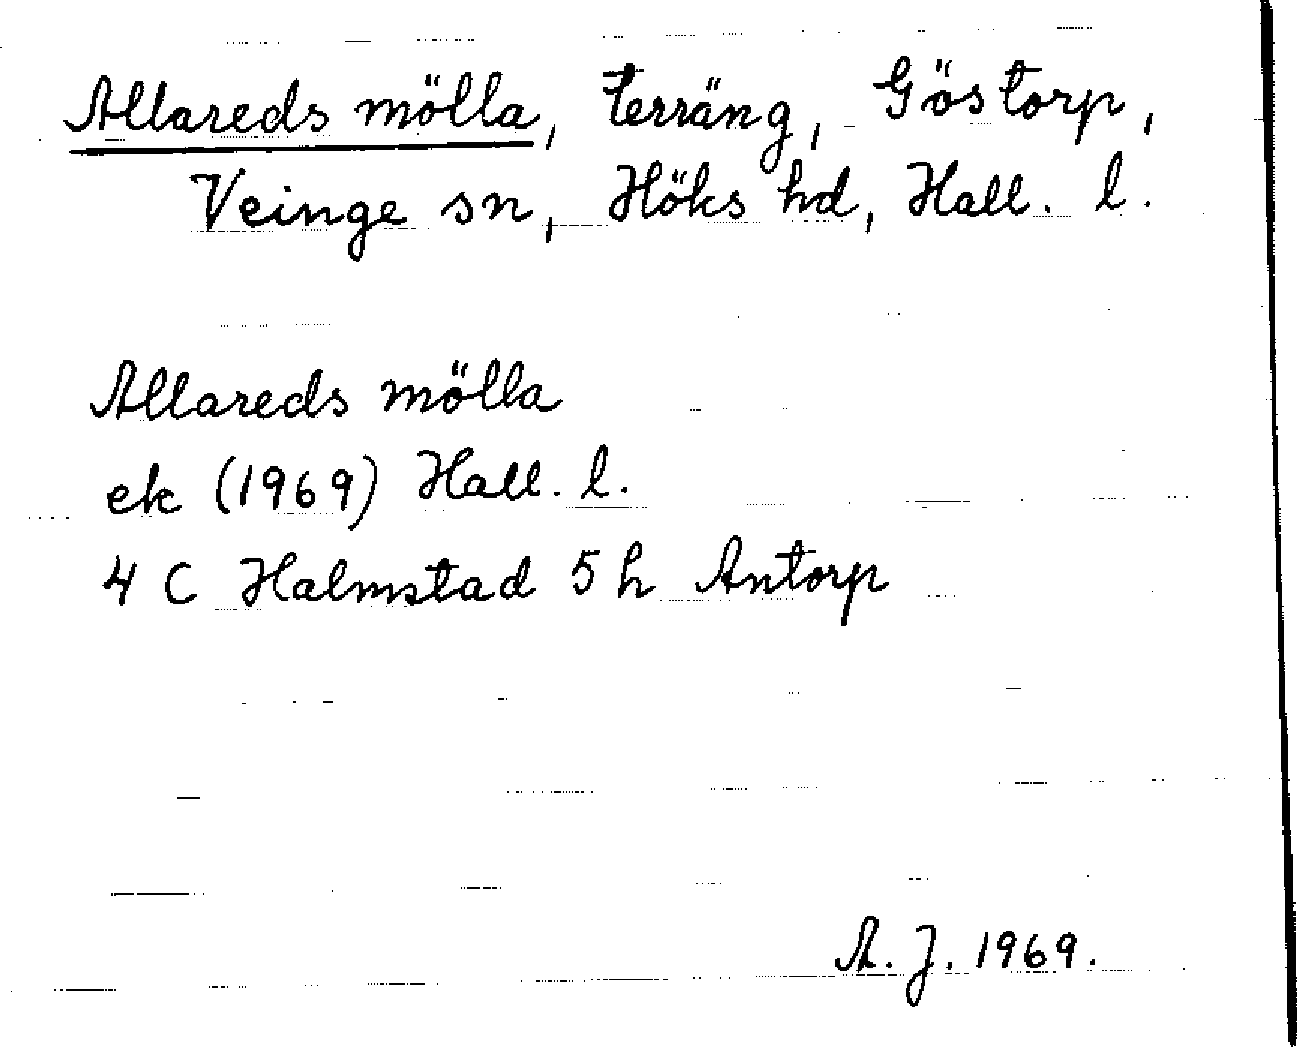 Allareds mölla, terräng, Göstorp,
Veinge sn, Höks hd, Hall. l.
Allareds mölla
ek (1969) Hall. l.
4 C Halmstad 5 h Antorp
A. J. 1969.